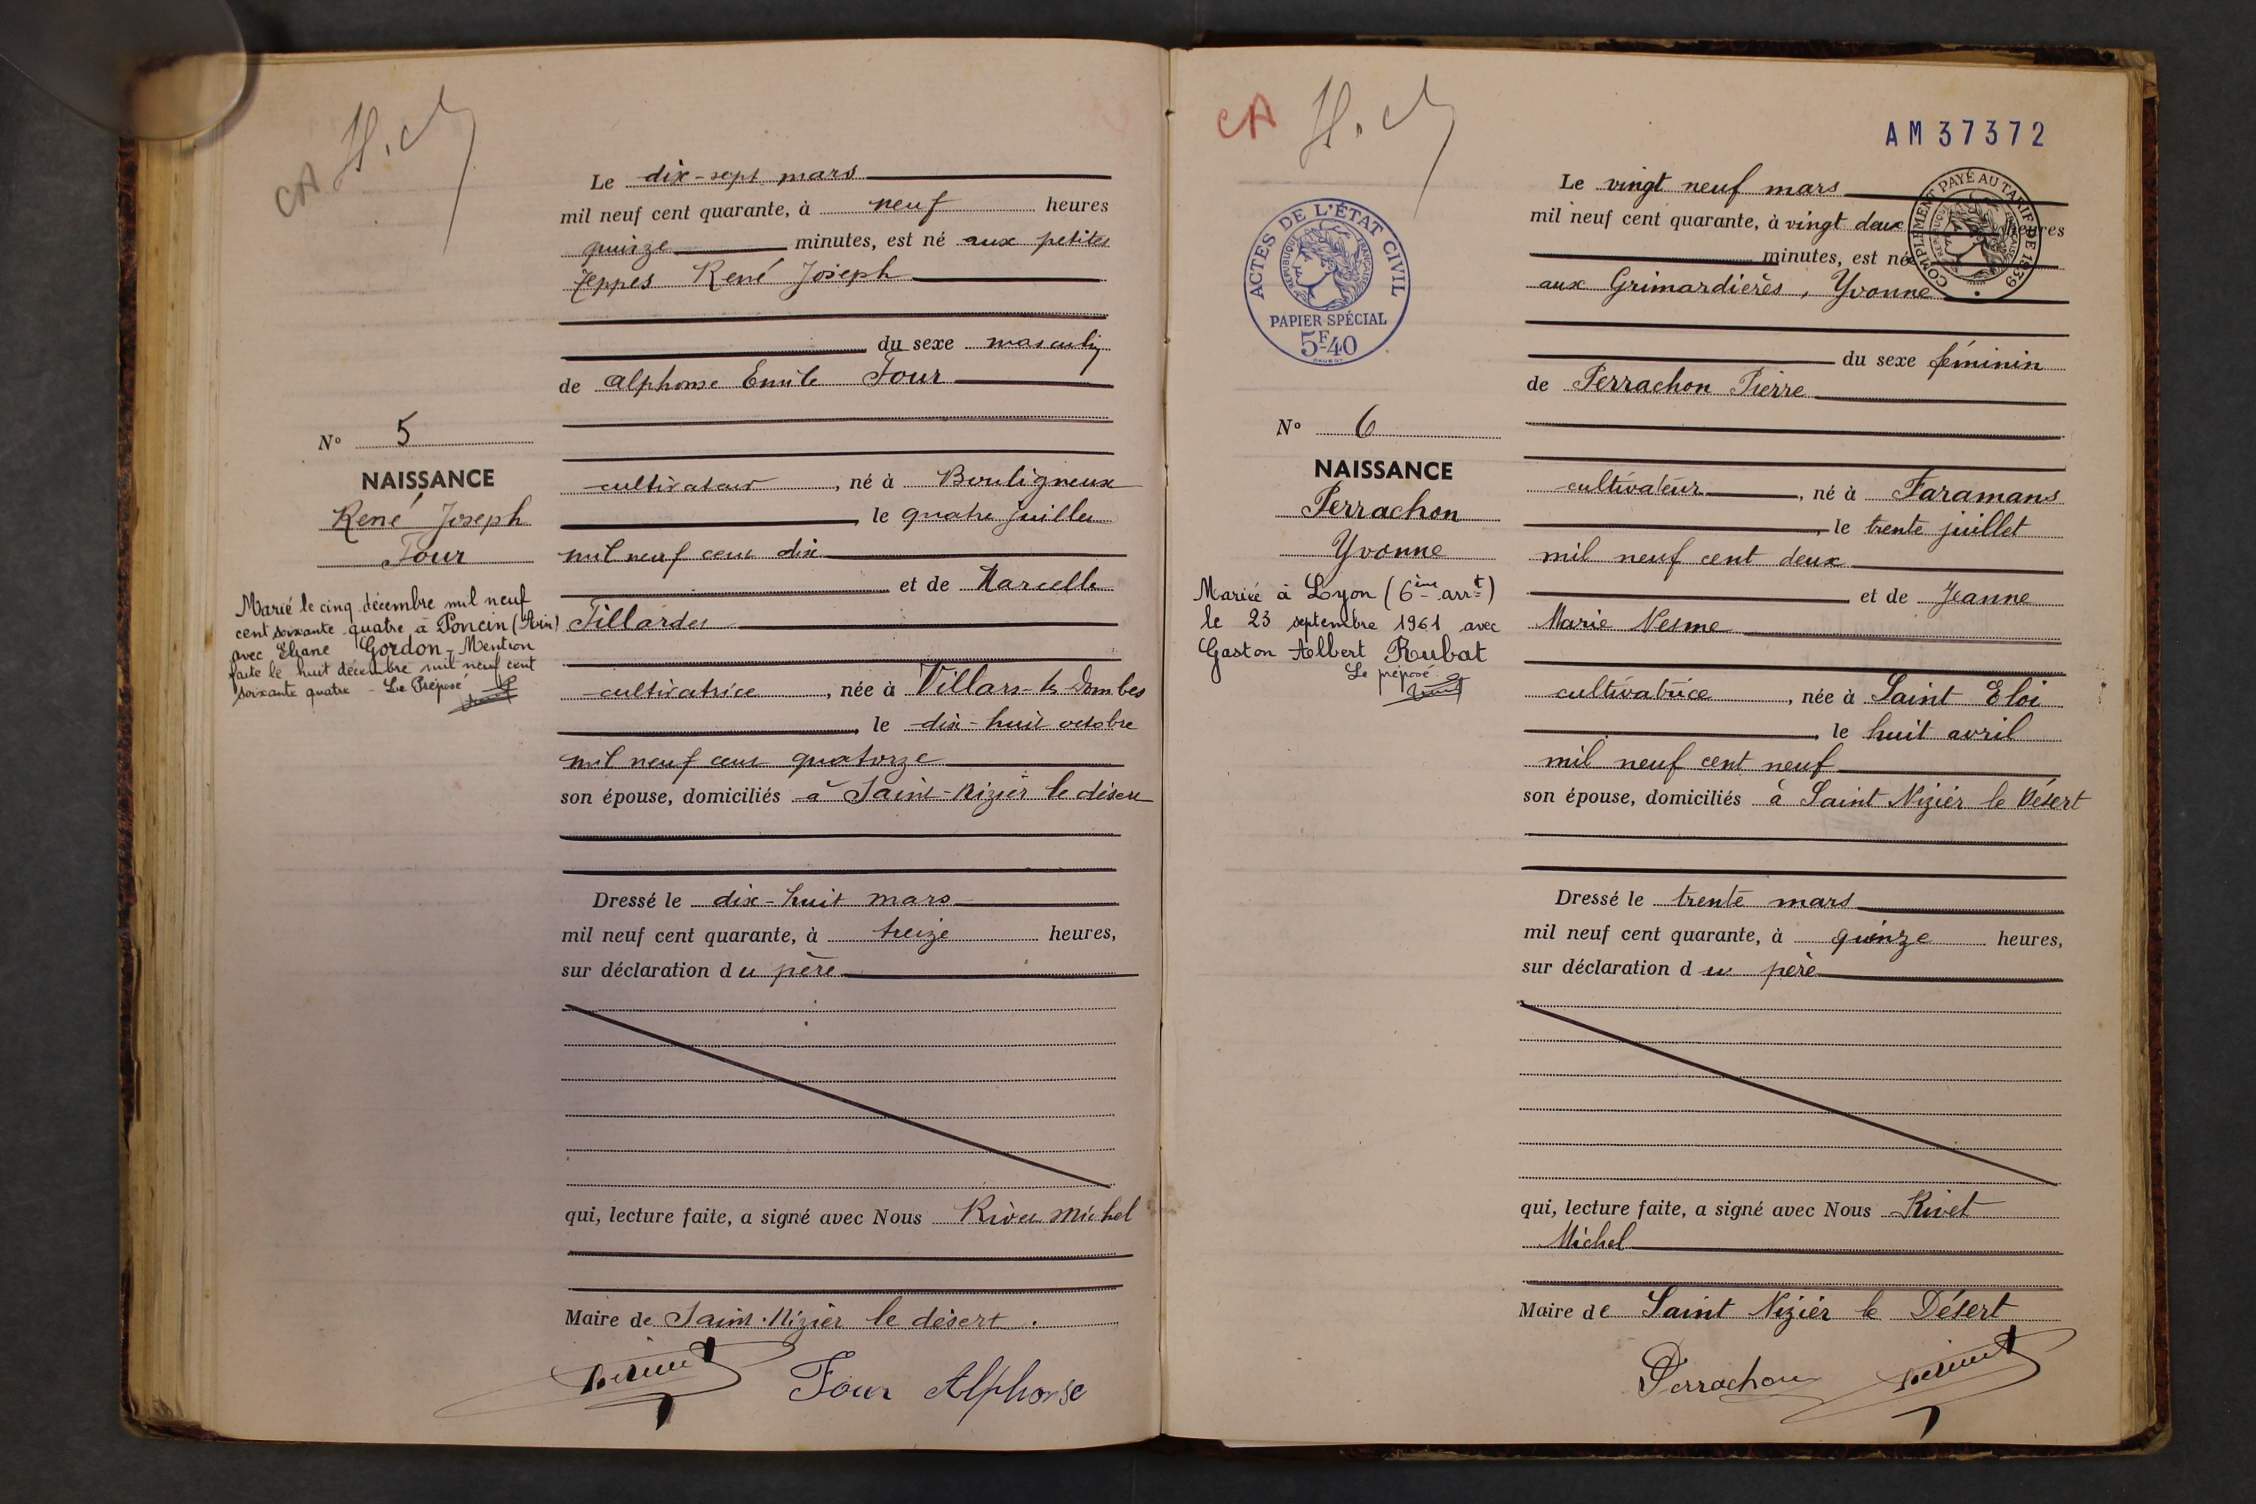 CA H.
Le dix-sept mars
mil neuf cent quarante, à neuf heures
quinze minutes, est né aux petites
Jeppes René Joseph
du sexe masculin
de Alphonse Emile Four
cultivateur, né à Bouligneux
, le quatre juillet
mil neuf cent dix
et de Marcelle
Tillardet
cultivatrice, née à Villars-les-Dombes
, le dix-huit octobre
mil neuf cent quatorze
son épouse, domiciliés à Saint-Nizier le désert
Dressé le dix-huit mars
mil neuf cent quarante, à treize heures,
sur déclaration du père
qui, lecture faite, a signé avec Nous Rivet Michel
Maire de Saint-Nizier le désert.
Four Alphonse
N° 5
NAISSANCE
René Joseph
Four
Marié le cinq décembre mil neuf
cent soixante quatre à Poncin (Ain)
avec Eliane Gordon - Mention
faite le huit décembre mil neuf cent
soixante quatre - Le Préposé
CA H.
AM 37372
COMPLÉMENT PAYÉ AU TARIF DE 1939
RÉPUBLIQUE FRANÇAISE
ACTES DE L'ÉTAT CIVIL
RÉPUBLIQUE FRANÇAISE
PAPIER SPÉCIAL
5F40
Le vingt neuf mars
mil neuf cent quarante, à vingt deux heures
minutes, est né
aux Grimardières, Yvonne
du sexe féminin
de Perrachon Pierre
cultivateur, né à Faramans
, le trente juillet
mil neuf cent deux
et de Jeanne
Marie Nesme
cultivatrice, née à Saint Eloi
, le huit avril
mil neuf cent neuf
son épouse, domiciliés à Saint Nizier le Désert
Dressé le trente mars
mil neuf cent quarante, à quinze heures,
sur déclaration du père
qui, lecture faite, a signé avec Nous Rivet
Michel
Maire de Saint Nizier le Désert
Perrachon
N° 6
NAISSANCE
Perrachon
Yvonne
Mariée à Lyon (6ème arrt)
le 23 septembre 1961 avec
Gaston Albert Rubat
Le préposé